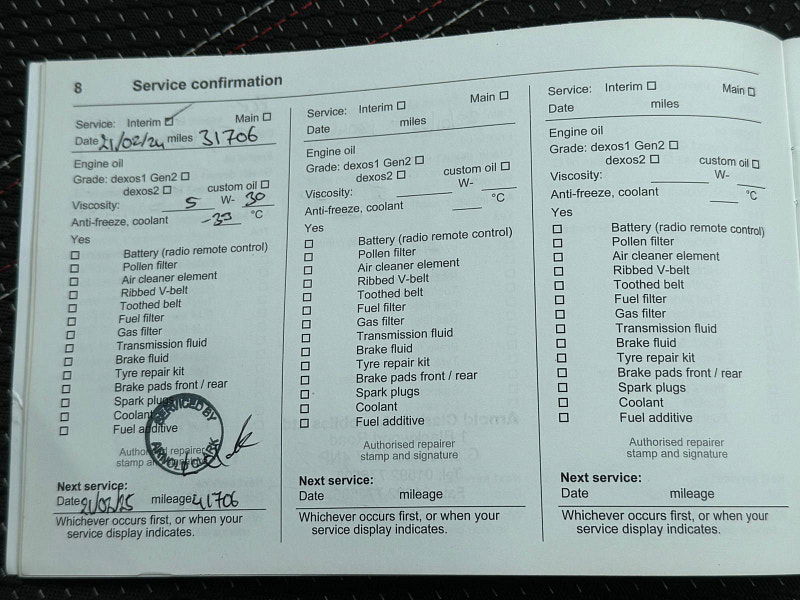 8 Service confirmation
Service: Interim Main
Date 21/02/24 miles 31706
Engine oil
Grade: dexos1 Gen2
dexos2 custom oil
Viscosity: 5 W- 30
Anti-freeze, coolant -39 °C
Yes
Battery (radio remote control)
Pollen filter
Air cleaner element
Ribbed V-belt
Toothed belt
Fuel filter
Gas filter
Transmission fluid
Brake fluid
Tyre repair kit
Brake pads front / rear
Spark plugs
Coolant
Fuel additive
SERVICED BY
ARNOLD CLARK
Authorised repairer
stamp and
Next service:
Date 21/02/25 mileage 41706
Whichever occurs first, or when your
service display indicates.
Service: Interim Main
Date miles
Engine oil
Grade: dexos1 Gen2
dexos2 custom oil
Viscosity: W-
Anti-freeze, coolant °C
Yes
Battery (radio remote control)
Pollen filter
Air cleaner element
Ribbed V-belt
Toothed belt
Fuel filter
Gas filter
Transmission fluid
Brake fluid
Tyre repair kit
Brake pads front / rear
Spark plugs
Coolant
Fuel additive
Authorised repairer
stamp and signature
Next service:
Date mileage
Whichever occurs first, or when your
service display indicates.
Service: Interim Main
Date miles
Engine oil
Grade: dexos1 Gen2
dexos2 custom oil
Viscosity: W-
Anti-freeze, coolant °C
Yes
Battery (radio remote control)
Pollen filter
Air cleaner element
Ribbed V-belt
Toothed belt
Fuel filter
Gas filter
Transmission fluid
Brake fluid
Tyre repair kit
Brake pads front / rear
Spark plugs
Coolant
Fuel additive
Authorised repairer
stamp and signature
Next service:
Date mileage
Whichever occurs first, or when your
service display indicates.